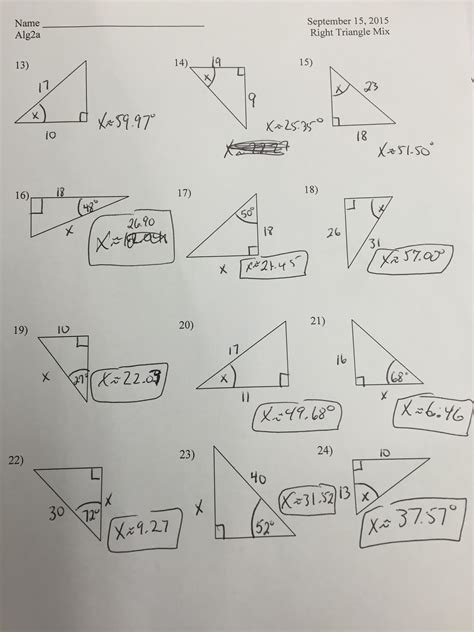 Name
September 15, 2015
Alg2a
Right Triangle Mix
13)
14)
15)
17
x
10
x≈59.97°
19
x
9
x≈25.35°
x
23
18
x≈51.50°
16)
17)
18)
18
48°
x
26.90
x≈
50°
18
x
x≈21.45
x
26
31
x≈57.00°
19)
20)
21)
10
x
27°
x≈22.03
17
x
11
x≈49.68°
16
68°
x
x≈6.46
22)
23)
24)
30
72°
x
x≈9.27
x
40
52°
x≈31.52
10
13
x
x≈37.57°